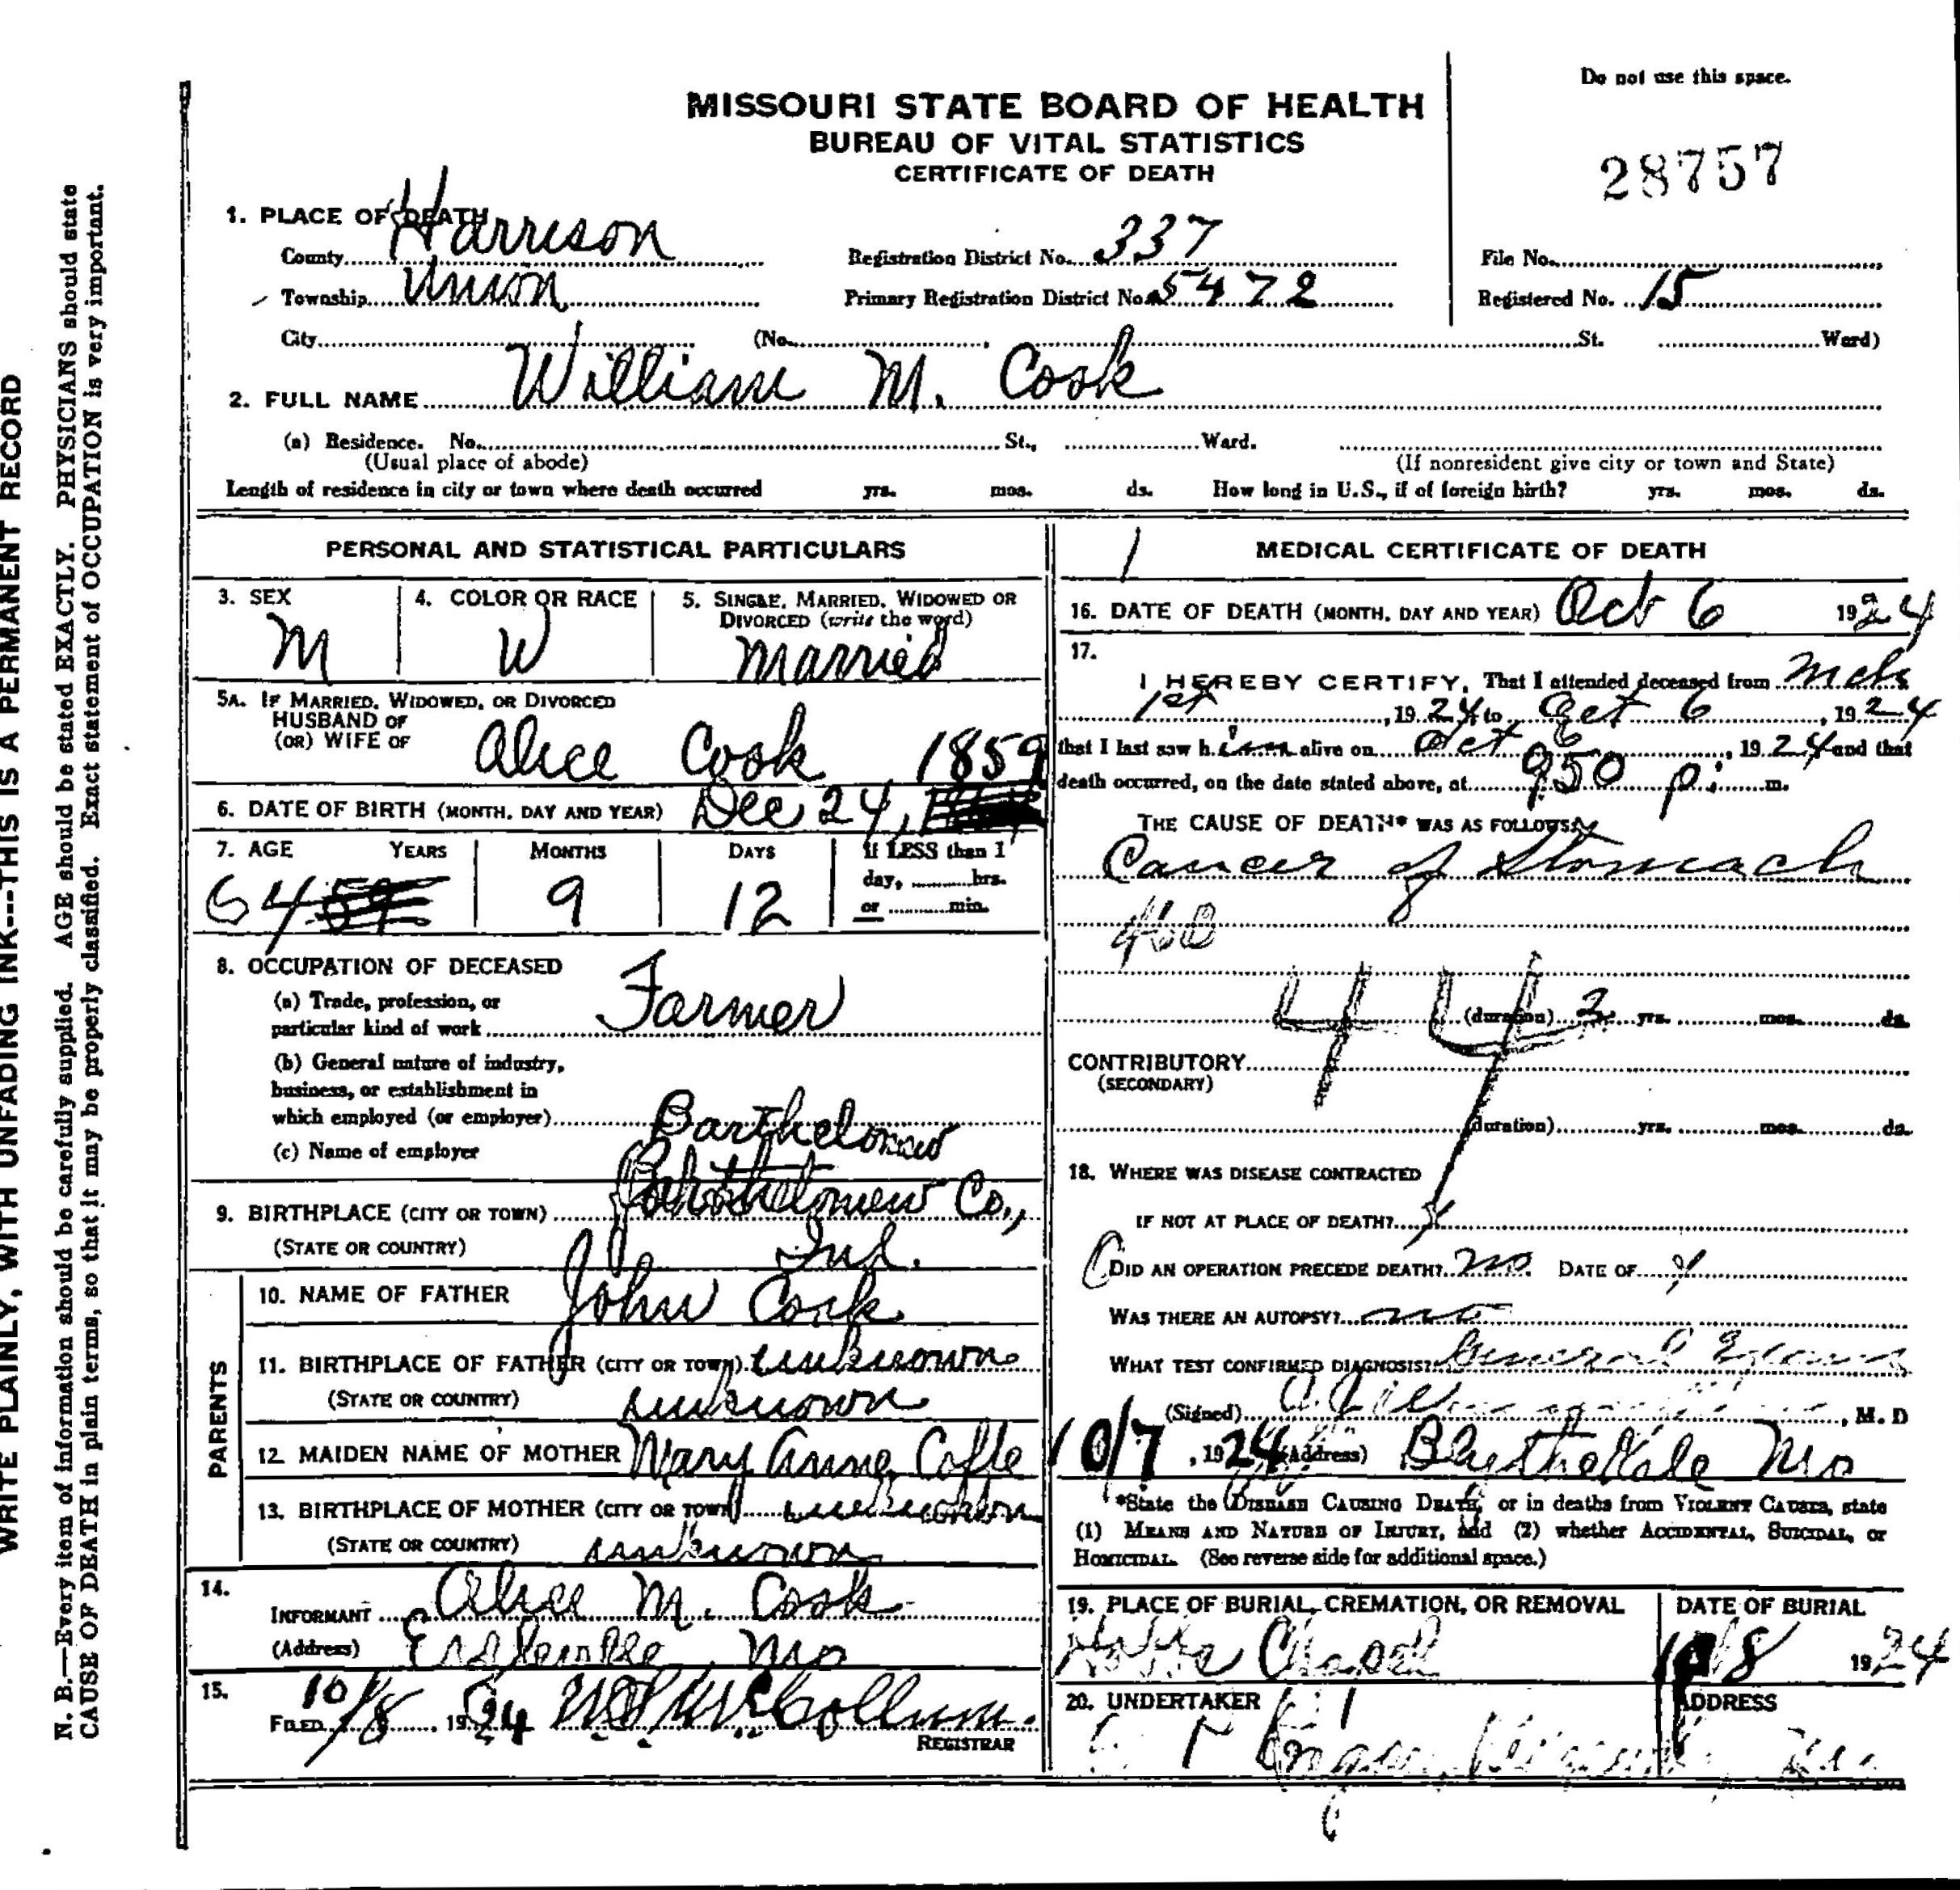 Do not use this space.
MISSOURI STATE BOARD OF HEALTH
BUREAU OF VITAL STATISTICS
CERTIFICATE OF DEATH
28757
1. PLACE OF DEATH
County Harrison Registration District No. 337 File No.
Township Union Primary Registration District No. 5472 Registered No. 15
City (No. St. Ward)
2. FULL NAME William M. Cook
(a) Residence. No. St., Ward.
(Usual place of abode) (If nonresident give city or town and State)
Length of residence in city or town where death occurred yrs. mos. ds. How long in U.S., if of foreign birth? yrs. mos. ds.
PERSONAL AND STATISTICAL PARTICULARS
3. SEX 4. COLOR OR RACE 5. SINGLE, MARRIED, WIDOWED OR
DIVORCED (write the word)
M W Married
5A. IF MARRIED, WIDOWED, OR DIVORCED
HUSBAND OF
(OR) WIFE OF Alice Cook 1859
6. DATE OF BIRTH (MONTH, DAY AND YEAR) Dec 24,
7. AGE YEARS MONTHS DAYS If LESS than 1
day, hrs.
or min.
64 59 9 12
8. OCCUPATION OF DECEASED
(a) Trade, profession, or
particular kind of work Farmer
(b) General nature of industry,
business, or establishment in
which employed (or employer)
(c) Name of employer
Barthelomew
9. BIRTHPLACE (CITY OR TOWN) Barthelomew Co.,
(STATE OR COUNTRY) Ind.
PARENTS
10. NAME OF FATHER John Cook
11. BIRTHPLACE OF FATHER (CITY OR TOWN) unknown
(STATE OR COUNTRY) unknown
12. MAIDEN NAME OF MOTHER Mary Anne
13. BIRTHPLACE OF MOTHER (CITY OR TOWN) unknown
(STATE OR COUNTRY) unknown
14.
INFORMANT Alice M. Cook
(Address) Eagleville Mo
15.
FILED 10/8, 1924 McCollum.
REGISTRAR
1 MEDICAL CERTIFICATE OF DEATH
16. DATE OF DEATH (MONTH, DAY AND YEAR) Oct 6 1924
17.
I HEREBY CERTIFY, That I attended deceased from Mch
1st, 1924 to Oct 6, 1924
that I last saw h im alive on Oct 6, 1924 and that
death occurred, on the date stated above, at 950 p. m.
THE CAUSE OF DEATH* WAS AS FOLLOWS:
Cancer of Stomach
44
(duration) 3 yrs. mos. ds.
CONTRIBUTORY
(SECONDARY)
(duration) yrs. mos. ds.
18. WHERE WAS DISEASE CONTRACTED
IF NOT AT PLACE OF DEATH?
DID AN OPERATION PRECEDE DEATH? no. DATE OF
WAS THERE AN AUTOPSY? no
WHAT TEST CONFIRMED DIAGNOSIS? General Exam
(Signed) , M. D
10/7, 1924 (Address) Blythedale Mo
*State the DISEASE CAUSING DEATH, or in deaths from VIOLENT CAUSES, state
(1) MEANS AND NATURE OF INJURY, and (2) whether ACCIDENTAL, SUICIDAL, or
HOMICIDAL. (See reverse side for additional space.)
19. PLACE OF BURIAL, CREMATION, OR REMOVAL DATE OF BURIAL
Chapel 10/8 1924
20. UNDERTAKER ADDRESS
WRITE PLAINLY, WITH UNFADING INK---THIS IS A PERMANENT RECORD
N. B.—Every item of information should be carefully supplied. AGE should be stated EXACTLY. PHYSICIANS should state
CAUSE OF DEATH in plain terms, so that it may be properly classified. Exact statement of OCCUPATION is very important.